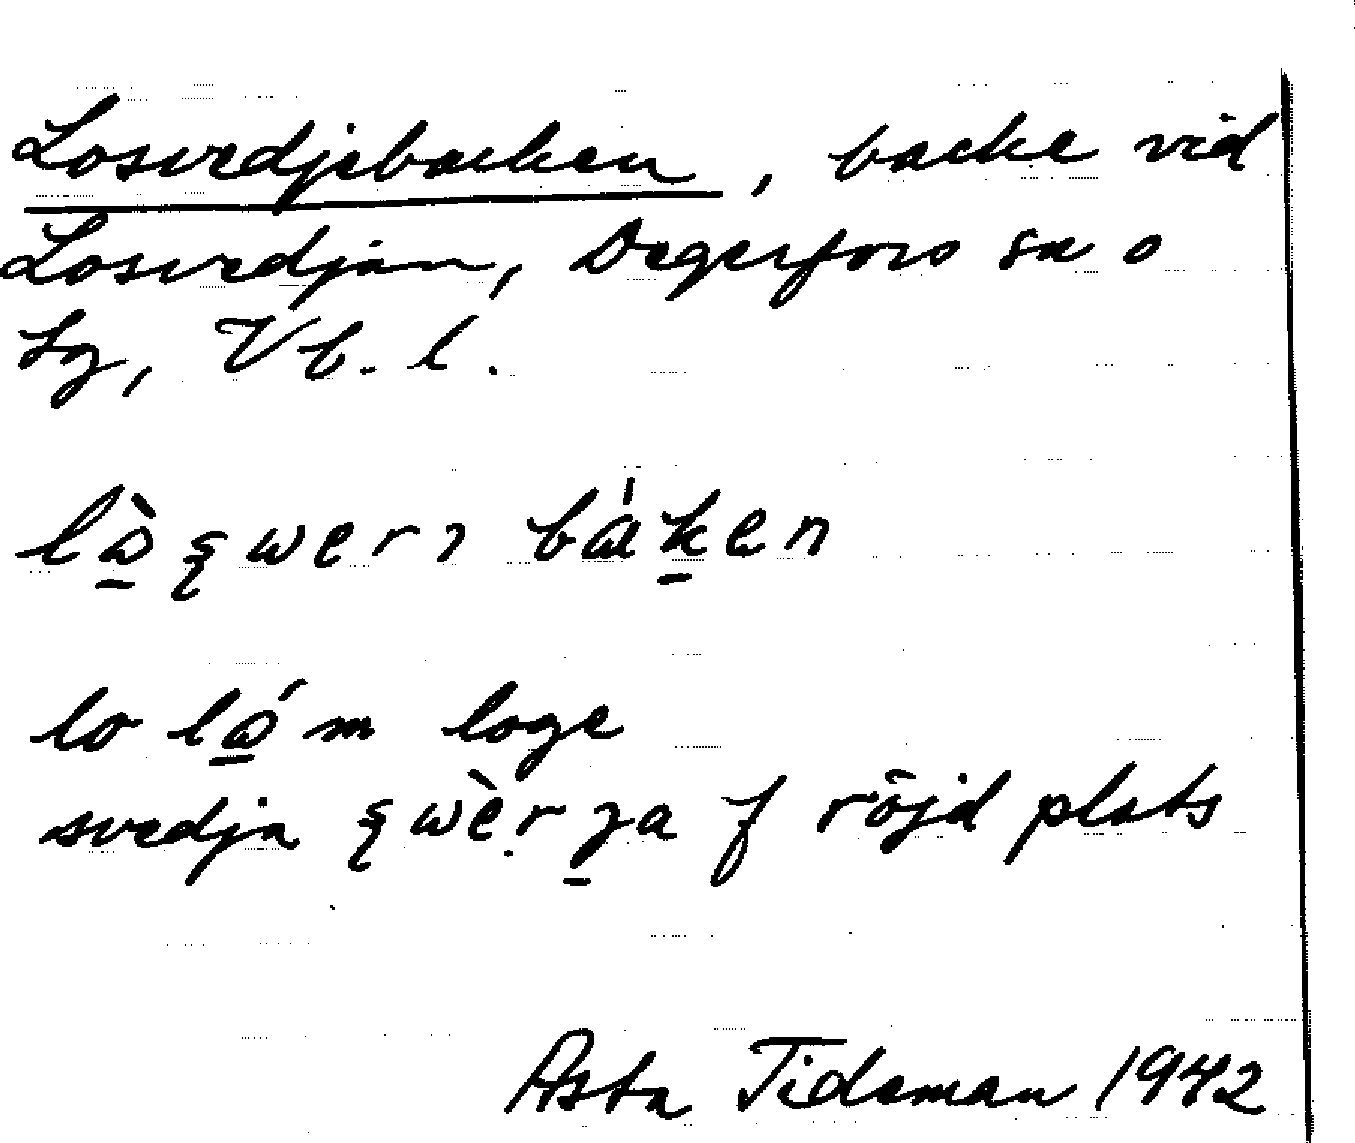 Losvedjebacken, backe vid
Losvedjan, Degerfors sn o
hg, Vb. l.
backen
lo m loge
svedja f röjd plats
Asta Tideman 1942